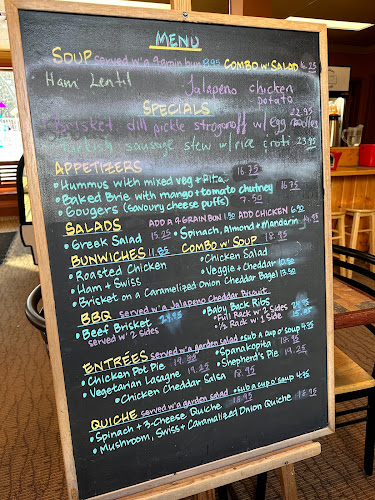 MENU
SOUP served w/ a grain bun 8.95 COMBO w/ SALAD 16.25
Ham Lentil
Jalapeno chicken
potato
SPECIALS
Brisket dill pickle stroganoff w/ egg noodles 22.95
Turkish sausage stew w/ rice + roti 23.95
APPETIZERS
• Hummus with mixed veg + Pita 16.75
• Baked Brie with mango + tomato chutney 16.75
• Gougers (savoury cheese puffs) 7.50
SALADS ADD A 9 GRAIN BUN 1.50 ADD CHICKEN 6.50
• Greek Salad 15.25 • Spinach, Almond + Mandarin 14.95
BUNWICHES 11.95 COMBO w/ SOUP 18.95
• Roasted Chicken • Chicken Salad
• Ham + Swiss • Veggie + Cheddar 10.50
• Brisket on a Caramelized Onion Cheddar Bagel 13.50
BBQ served w/ a Jalapeno Cheddar Biscuit
• Beef Brisket
served w/ 2 Sides
• Baby Back Ribs
• Full Rack w/ 2 Sides
• ½ Rack w/ 1 Side
ENTRÉES served w/ a garden salad • sub a cup o' soup 4.95
• Chicken Pot Pie 19.95 • Spanakopita 18.95
• Vegetarian Lasagne 19.25 • Shepherd's Pie 19.25
• Chicken Cheddar Salsa 18.95
QUICHE served w/ a garden salad • sub a cup o' soup 4.95
• Spinach + 3-Cheese Quiche 18.95
• Mushroom, Swiss + Caramalized Onion Quiche 18.95